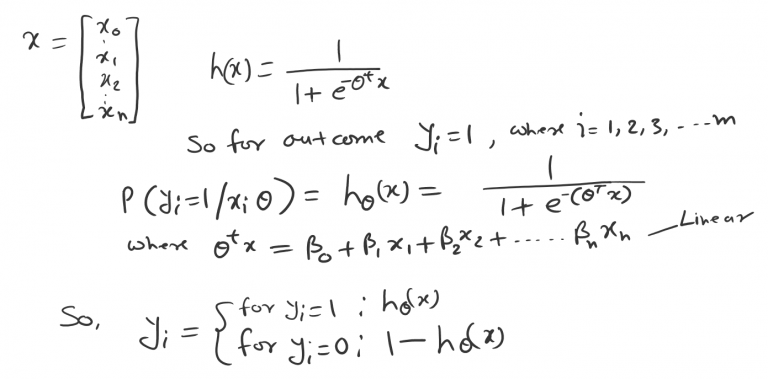 x = [x₀ x₁ x₂ ⋮ xₙ]
h(x) = 1 / (1 + e^(-θᵗx))
So for outcome yᵢ=1, where i= 1, 2, 3, - --- m
P(yᵢ=1/x; θ) = h_θ(x) = 1 / (1 + e^(-(θᵀx)))
where θᵗx = β₀ + β₁x₁ + β₂x₂ + ..... βₙxₙ — Linear
So, yᵢ = { for yᵢ=1 ; h_θ(x)
for yᵢ=0; 1 - h_θ(x)